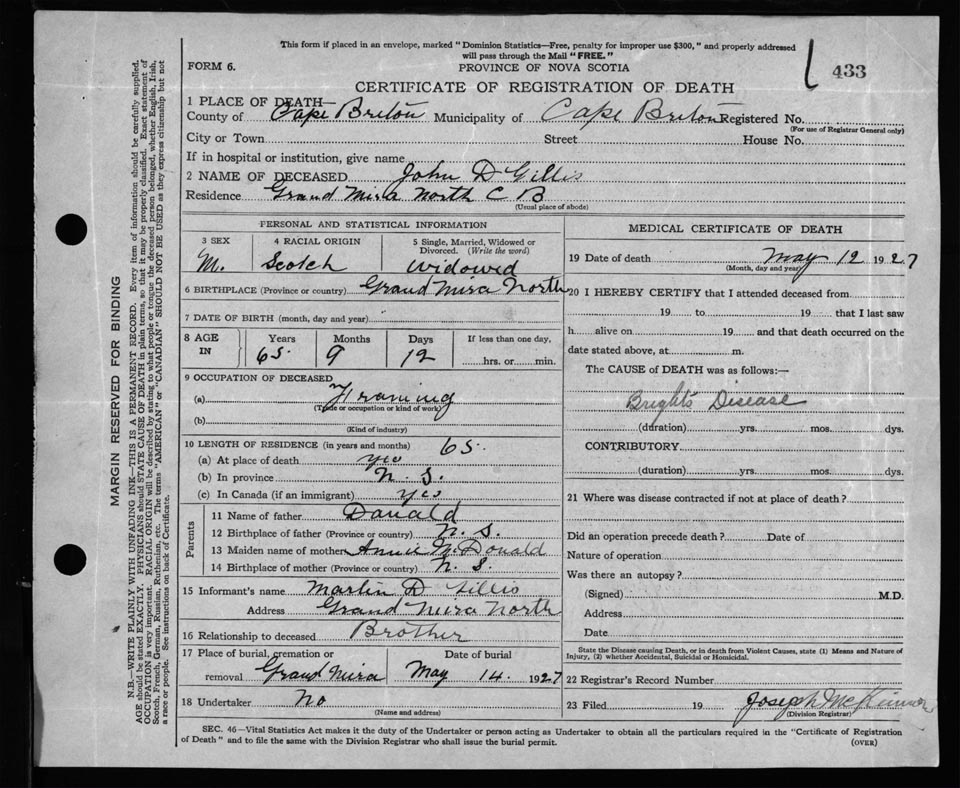 This form if placed in an envelope, marked "Dominion Statistics—Free, penalty for improper use $300," and properly addressed
will pass through the Mail "FREE."
FORM 6. PROVINCE OF NOVA SCOTIA 433
CERTIFICATE OF REGISTRATION OF DEATH
1 PLACE OF DEATH—
County of Cape Breton Municipality of Cape Breton Registered No.
(For use of Registrar General only)
City or Town Street House No.
If in hospital or institution, give name
2 NAME OF DECEASED John D Gillis
Residence Grand Mira North C B
(Usual place of abode)
PERSONAL AND STATISTICAL INFORMATION
3 SEX 4 RACIAL ORIGIN 5 Single, Married, Widowed or
Divorced. (Write the word)
M. Scotch widowed
6 BIRTHPLACE (Province or country) Grand Mira North
7 DATE OF BIRTH (month, day and year)
8 AGE Years Months Days If less than one day,
IN 65 9 12 hrs. or min.
9 OCCUPATION OF DECEASED
(a) Framing
(Trade or occupation or kind of work)
(b)
(Kind of industry)
10 LENGTH OF RESIDENCE (in years and months) 65.
(a) At place of death yes
(b) In province N. S.
(c) In Canada (if an immigrant) yes
Parents
11 Name of father Donald
12 Birthplace of father (Province or country) N. S.
13 Maiden name of mother Annie McDonald
14 Birthplace of mother (Province or country) N. S.
15 Informant's name Martin D Gillis
Address Grand Mira North
16 Relationship to deceased Brother
17 Place of burial, cremation or Date of burial
removal Grand Mira May 14. 1927
18 Undertaker No
(Name and address)
MEDICAL CERTIFICATE OF DEATH
19 Date of death May 12 1927
(Month, day and year)
20 I HEREBY CERTIFY that I attended deceased from
19 to 19 that I last saw
h alive on 19 and that death occurred on the
date stated above, at m.
The CAUSE of DEATH was as follows:—
Brights Disease
(duration) yrs. mos. dys.
CONTRIBUTORY
(duration) yrs. mos. dys.
21 Where was disease contracted if not at place of death?
Did an operation precede death? Date of
Nature of operation
Was there an autopsy?
(Signed) M.D.
Address
Date
State the Disease causing Death, or in death from Violent Causes, state (1) Means and Nature of
Injury, (2) whether Accidental, Suicidal or Homicidal.
22 Registrar's Record Number
23 Filed 19 Joseph McKinnon
(Division Registrar)
SEC. 46—Vital Statistics Act makes it the duty of the Undertaker or person acting as Undertaker to obtain all the particulars required in the "Certificate of Registration
of Death" and to file the same with the Division Registrar who shall issue the burial permit. (OVER)
MARGIN RESERVED FOR BINDING
N.B.—WRITE PLAINLY WITH UNFADING INK—THIS IS A PERMANENT RECORD. Every item of information should be carefully supplied.
AGE should be stated EXACTLY. PHYSICIANS should STATE CAUSE OF DEATH in plain terms, so that it may be properly classified. Exact statement of
OCCUPATION is very important. RACIAL ORIGIN will be described by stating to what people or tongue the deceased person belonged, whether English, Irish,
Scotch, French, German, Russian, Ruthenian, etc. The terms "AMERICAN" or "CANADIAN" SHOULD NOT BE USED as they express citizenship but not
a race or people. See instructions on back of Certificate.